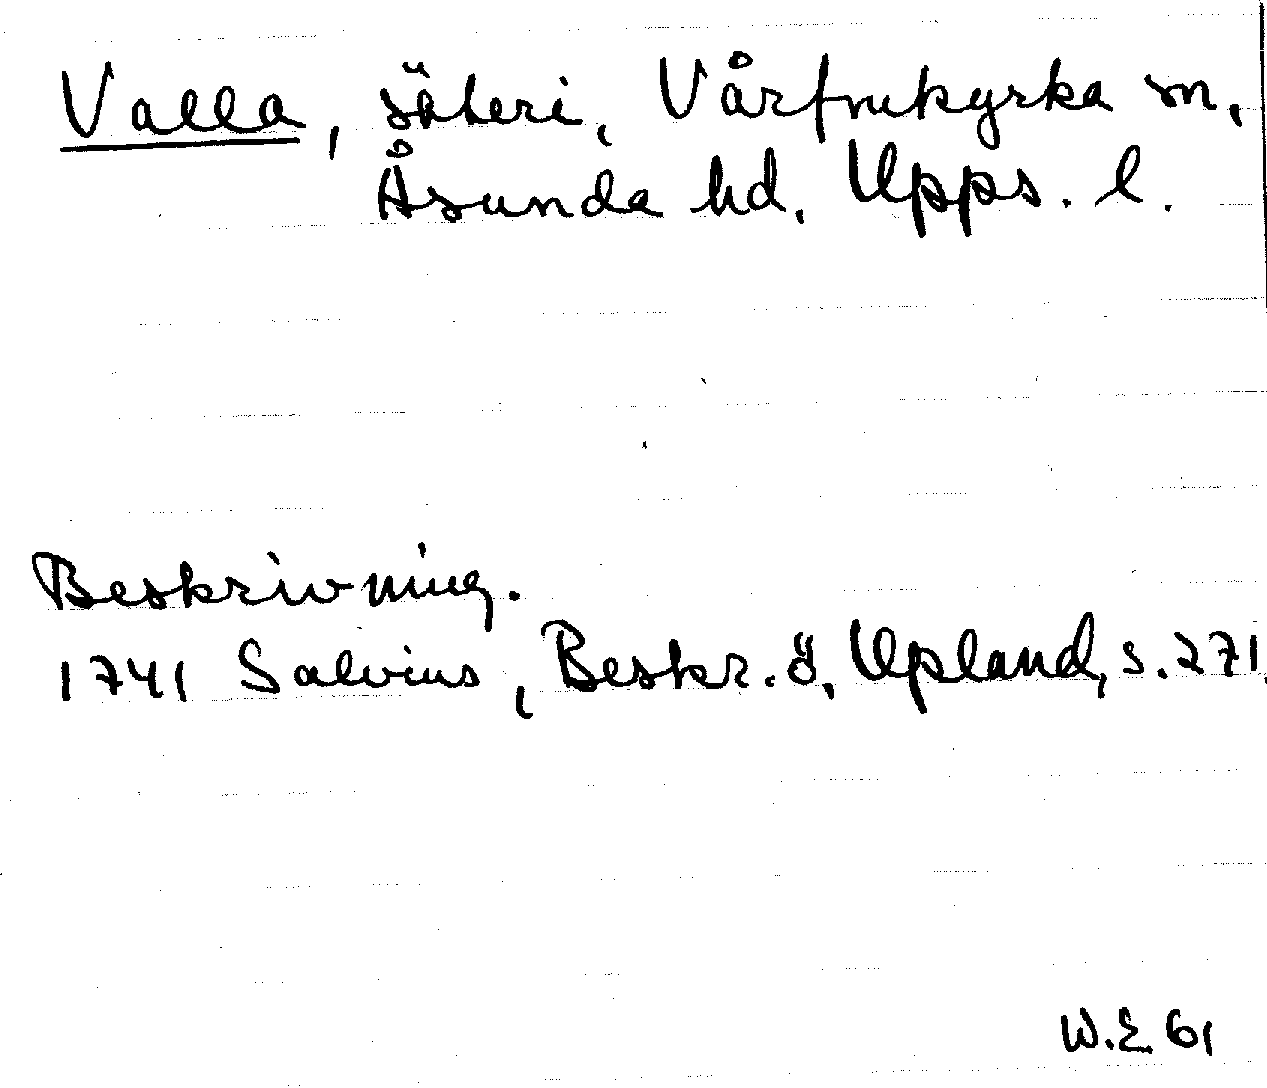 Valla, säteri, Vårfrukyrka sn,
Åsunda hd, Upps. l.
Beskrivning.
1741 Salvius, Beskr. ö, Upland, s. 271
W.E 61